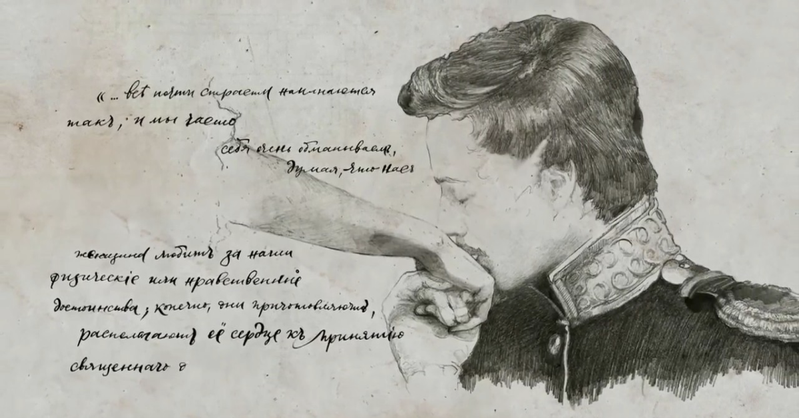 «... всѣ почти страсти начинаются
такъ, и мы часто
себя очень обманываемъ,
думая, что насъ
женщина любитъ за наши
физическіе или нравственніе
достоинства; конечно, они приготовляютъ,
располагаютъ её сердце къ принятію
священнаго о